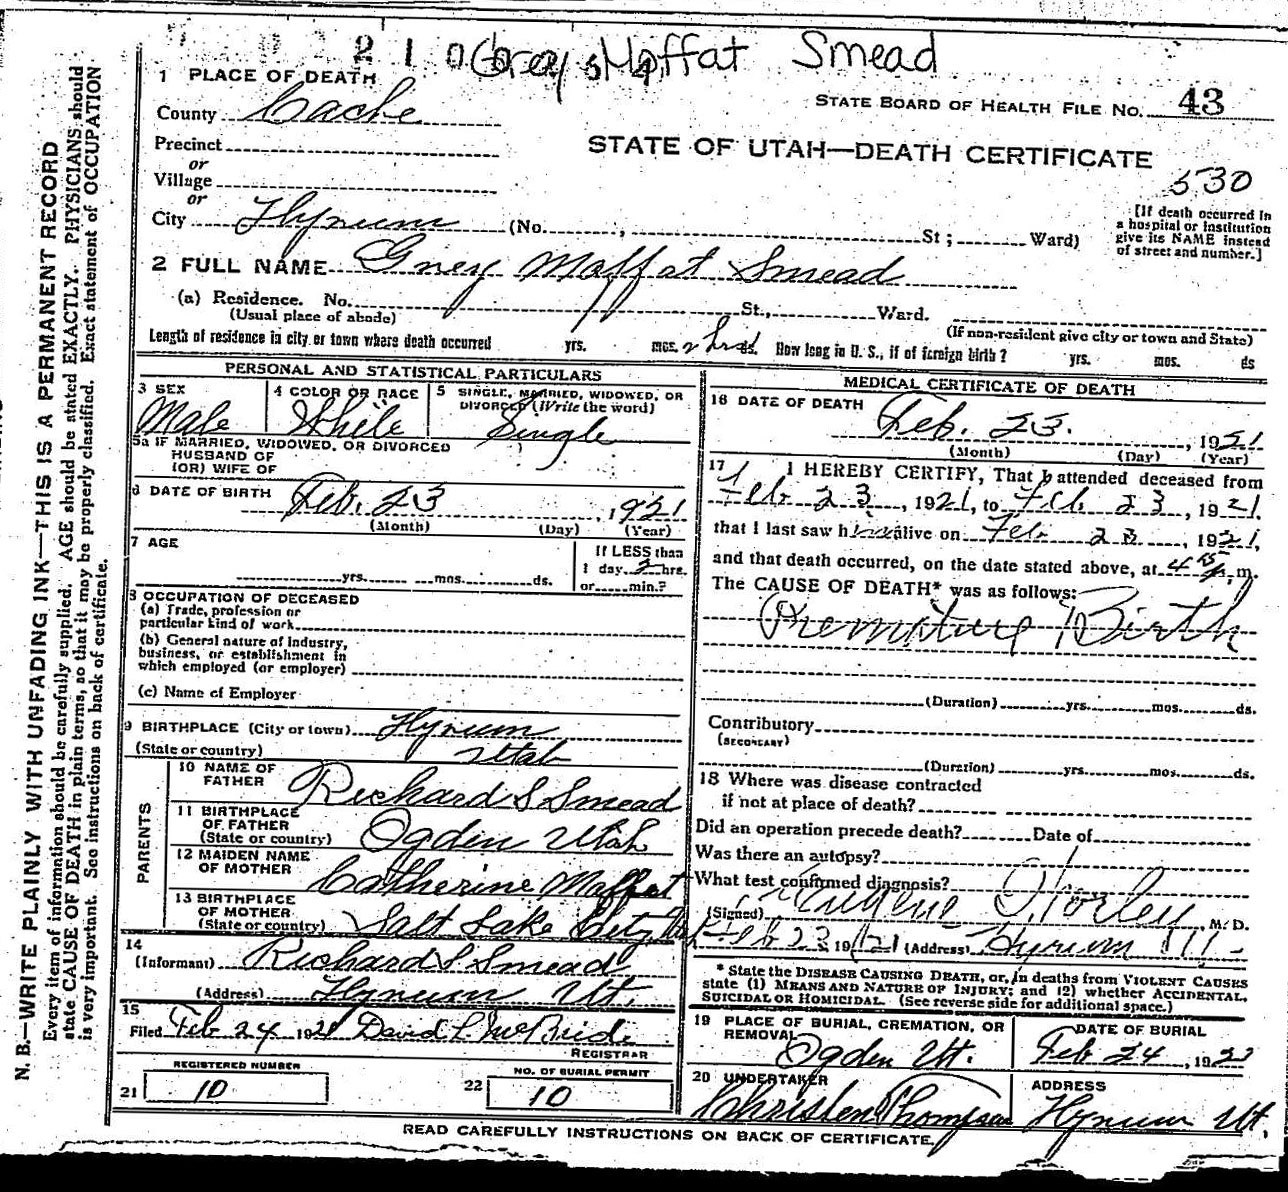 2 1 0 Grey Moffat Smead
STATE BOARD OF HEALTH FILE No. 43
STATE OF UTAH—DEATH CERTIFICATE
530
1 PLACE OF DEATH
County Cache
Precinct
or
Village
or
City Hyrum (No. , St; Ward)
[If death occurred in
a hospital or institution
give its NAME instead
of street and number.]
2 FULL NAME Grey Moffat Smead
(a) Residence. No. St., Ward.
(Usual place of abode) (If non-resident give city or town and State)
Length of residence in city or town where death occurred yrs. mos. 2 hrs ds. How long in U. S., if of foreign birth? yrs. mos. ds
PERSONAL AND STATISTICAL PARTICULARS
3 SEX Male
4 COLOR OR RACE White
5 SINGLE, MARRIED, WIDOWED, OR
DIVORCED (Write the word)
Single
5a IF MARRIED, WIDOWED, OR DIVORCED
HUSBAND OF
(OR) WIFE OF
6 DATE OF BIRTH Feb. 23, 1921
(Month) (Day) (Year)
7 AGE
yrs. mos. ds.
If LESS than
1 day 2 hrs.
or min.?
8 OCCUPATION OF DECEASED
(a) Trade, profession or
particular kind of work
(b) General nature of industry,
business, or establishment in
which employed (or employer)
(c) Name of Employer
9 BIRTHPLACE (City or town) Hyrum
(State or country) Utah
PARENTS
10 NAME OF
FATHER Richard S Smead
11 BIRTHPLACE
OF FATHER
(State or country) Ogden Utah
12 MAIDEN NAME
OF MOTHER Catherine Moffat
13 BIRTHPLACE
OF MOTHER
(State or country) Salt Lake City
14
(Informant) Richard S Smead
(Address) Hyrum Ut.
15
Filed Feb 24 1921 David L. McBride
REGISTRAR
REGISTERED NUMBER
21 10
NO. OF BURIAL PERMIT
22 10
MEDICAL CERTIFICATE OF DEATH
16 DATE OF DEATH Feb. 23. , 1921
(Month) (Day) (Year)
17 I HEREBY CERTIFY, That I attended deceased from
Feb 23, 1921, to Feb. 23, 1921,
that I last saw him alive on Feb 23, 1921,
and that death occurred, on the date stated above, at 4 15 p. m.
The CAUSE OF DEATH* was as follows:
Premature Birth
(Duration) yrs. mos. ds.
Contributory
(SECONDARY)
(Duration) yrs. mos. ds.
18 Where was disease contracted
if not at place of death?
Did an operation precede death? Date of
Was there an autopsy?
What test confirmed diagnosis?
(Signed) Eugene Worley, M. D.
Feb 23 1921 (Address) Hyrum Ut
* State the DISEASE CAUSING DEATH, or, in deaths from VIOLENT CAUSES
state (1) MEANS AND NATURE OF INJURY; and (2) whether ACCIDENTAL,
SUICIDAL OR HOMICIDAL. (See reverse side for additional space.)
19 PLACE OF BURIAL, CREMATION, OR
REMOVAL
Ogden Ut.
DATE OF BURIAL
Feb 24, 192
20 UNDERTAKER
Christen Thompson
ADDRESS
Hyrum Ut.
READ CAREFULLY INSTRUCTIONS ON BACK OF CERTIFICATE.
N. B.—WRITE PLAINLY WITH UNFADING INK—THIS IS A PERMANENT RECORD
Every item of information should be carefully supplied. AGE should be stated EXACTLY. PHYSICIANS should
state CAUSE OF DEATH in plain terms, so that it may be properly classified. Exact statement of OCCUPATION
is very important. See instructions on back of certificate.